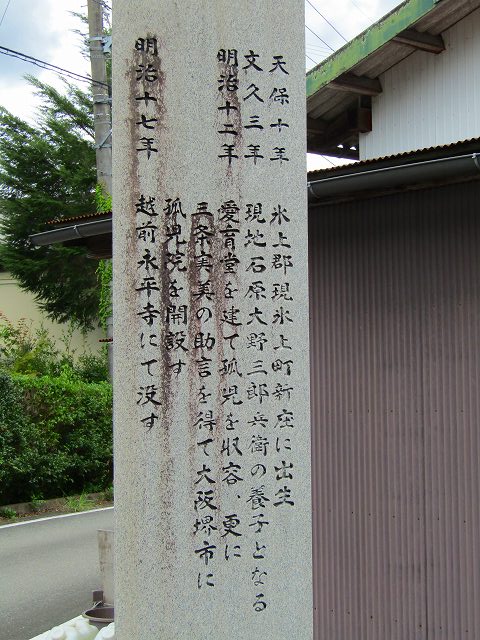 天保十年 氷上郡現氷上町新座に出生
文久三年 現地石原大野三郎兵衛の養子となる
明治十二年 愛育堂を建て孤児を収容、更に
三条実美の助言を得て大阪堺市に
孤児院を開設す
明治十七年 越前永平寺にて没す